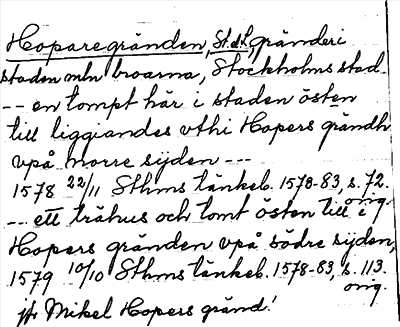 Hoparegränden, St.d.t., gränd i
staden mln broarna, Stockholms stad.
-- en tompt här i staden östen
till liggiandes vthi Hopers grändh
vpå norre sijden ---
1578 22/11 Sthms tänkeb. 1578-83, s. 72.
orig.
-- ett trähus och tomt östen till i
Hopers gränden vpå södre sijden,
1579 10/10 Sthms tänkeb. 1578-83, s. 113.
orig.
jfr Mikel Hopers gränd!